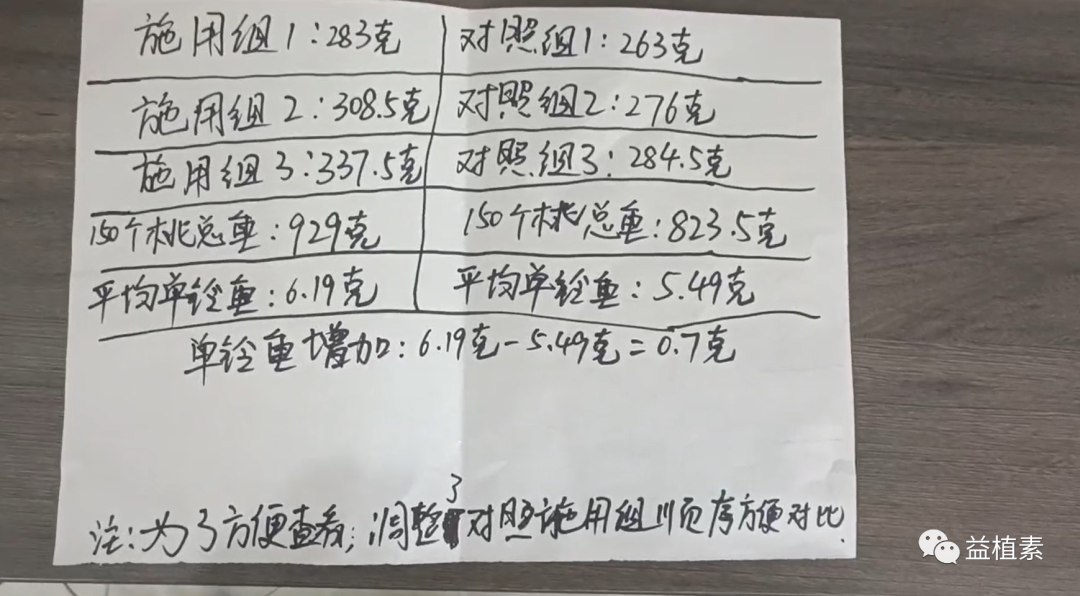 施用组1:283克 对照组1:263克
施用组2:308.5克 对照组2:276克
施用组3:337.5克 对照组3:284.5克
150个桃总重:929克 150个桃总重:823.5克
平均单铃重:6.19克 平均单铃重:5.49克
单铃重增加:6.19克-5.49克=0.7克
注:为了方便查看;调整了对照施用组顺序方便对比.
益植素